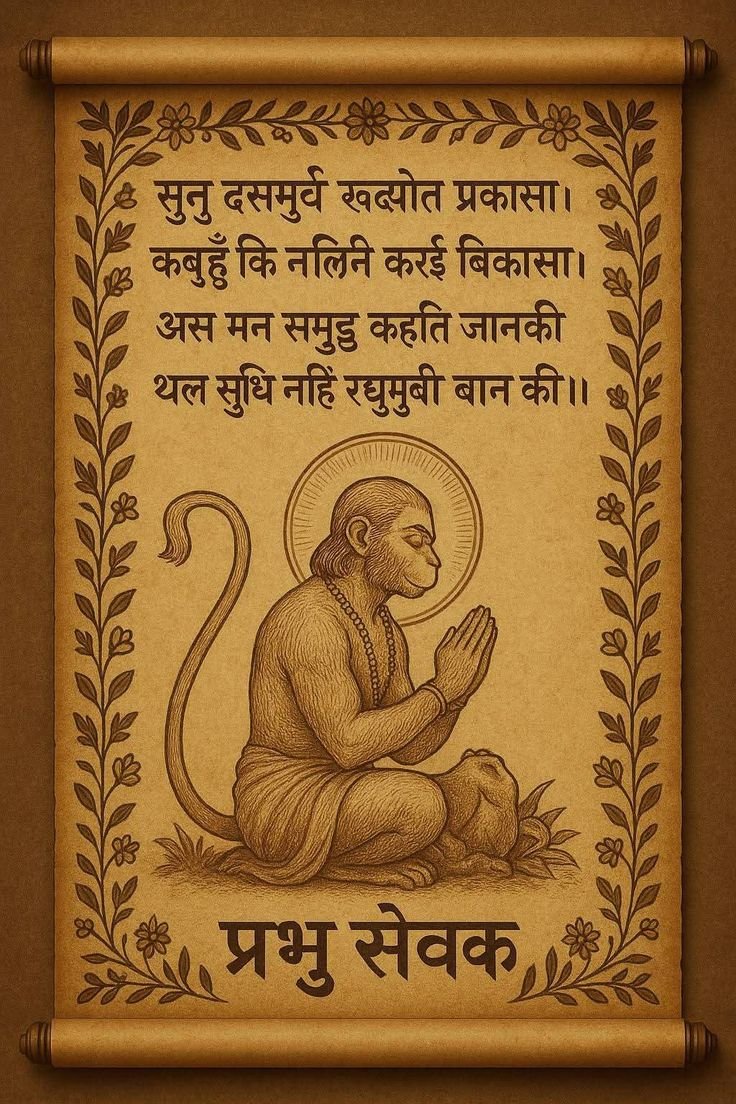 सुनु दसमुर्व खद्योत प्रकासा।
कबुहुँ कि नलिनी करई बिकासा।
अस मन समुड्ड कहति जानकी
थल सुधि नहिं रघुमुबी बान की॥
प्रभु सेवक